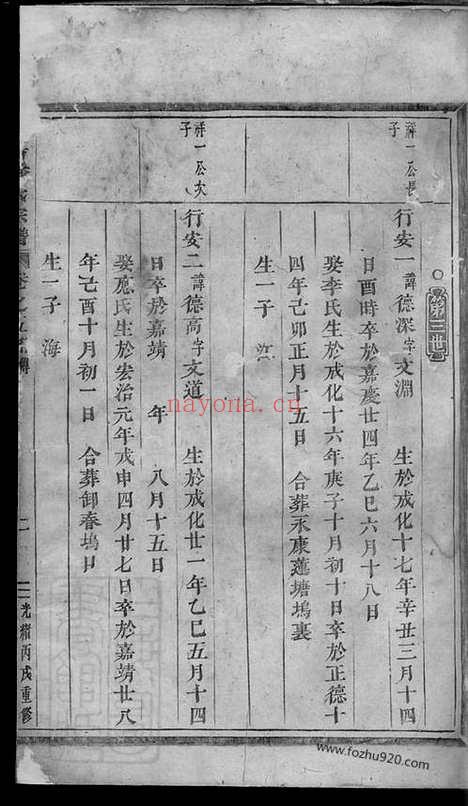 第三世
祥一公長
子
行安一諱德深字文淵 生於成化十七年辛丑三月十四
日酉時卒於嘉慶廿四年乙巳六月十八日
娶李氏生於成化十六年庚子十月初十日卒於正德十
四年己卯正月十五日 合葬永康蓮塘塢裏
生一子
祥一公次
子
行安二諱德高字文道 生於成化廿一年乙巳五月十四
日卒於嘉靖 年 八月十五日
娶應氏生於宏治元年戊申四月廿七日卒於嘉靖廿八
年己酉十月初一日 合葬卸春塢日
生一子 海
宗譜
二
光緒丙戌重修
nayona.cn
www.fozhu920.com